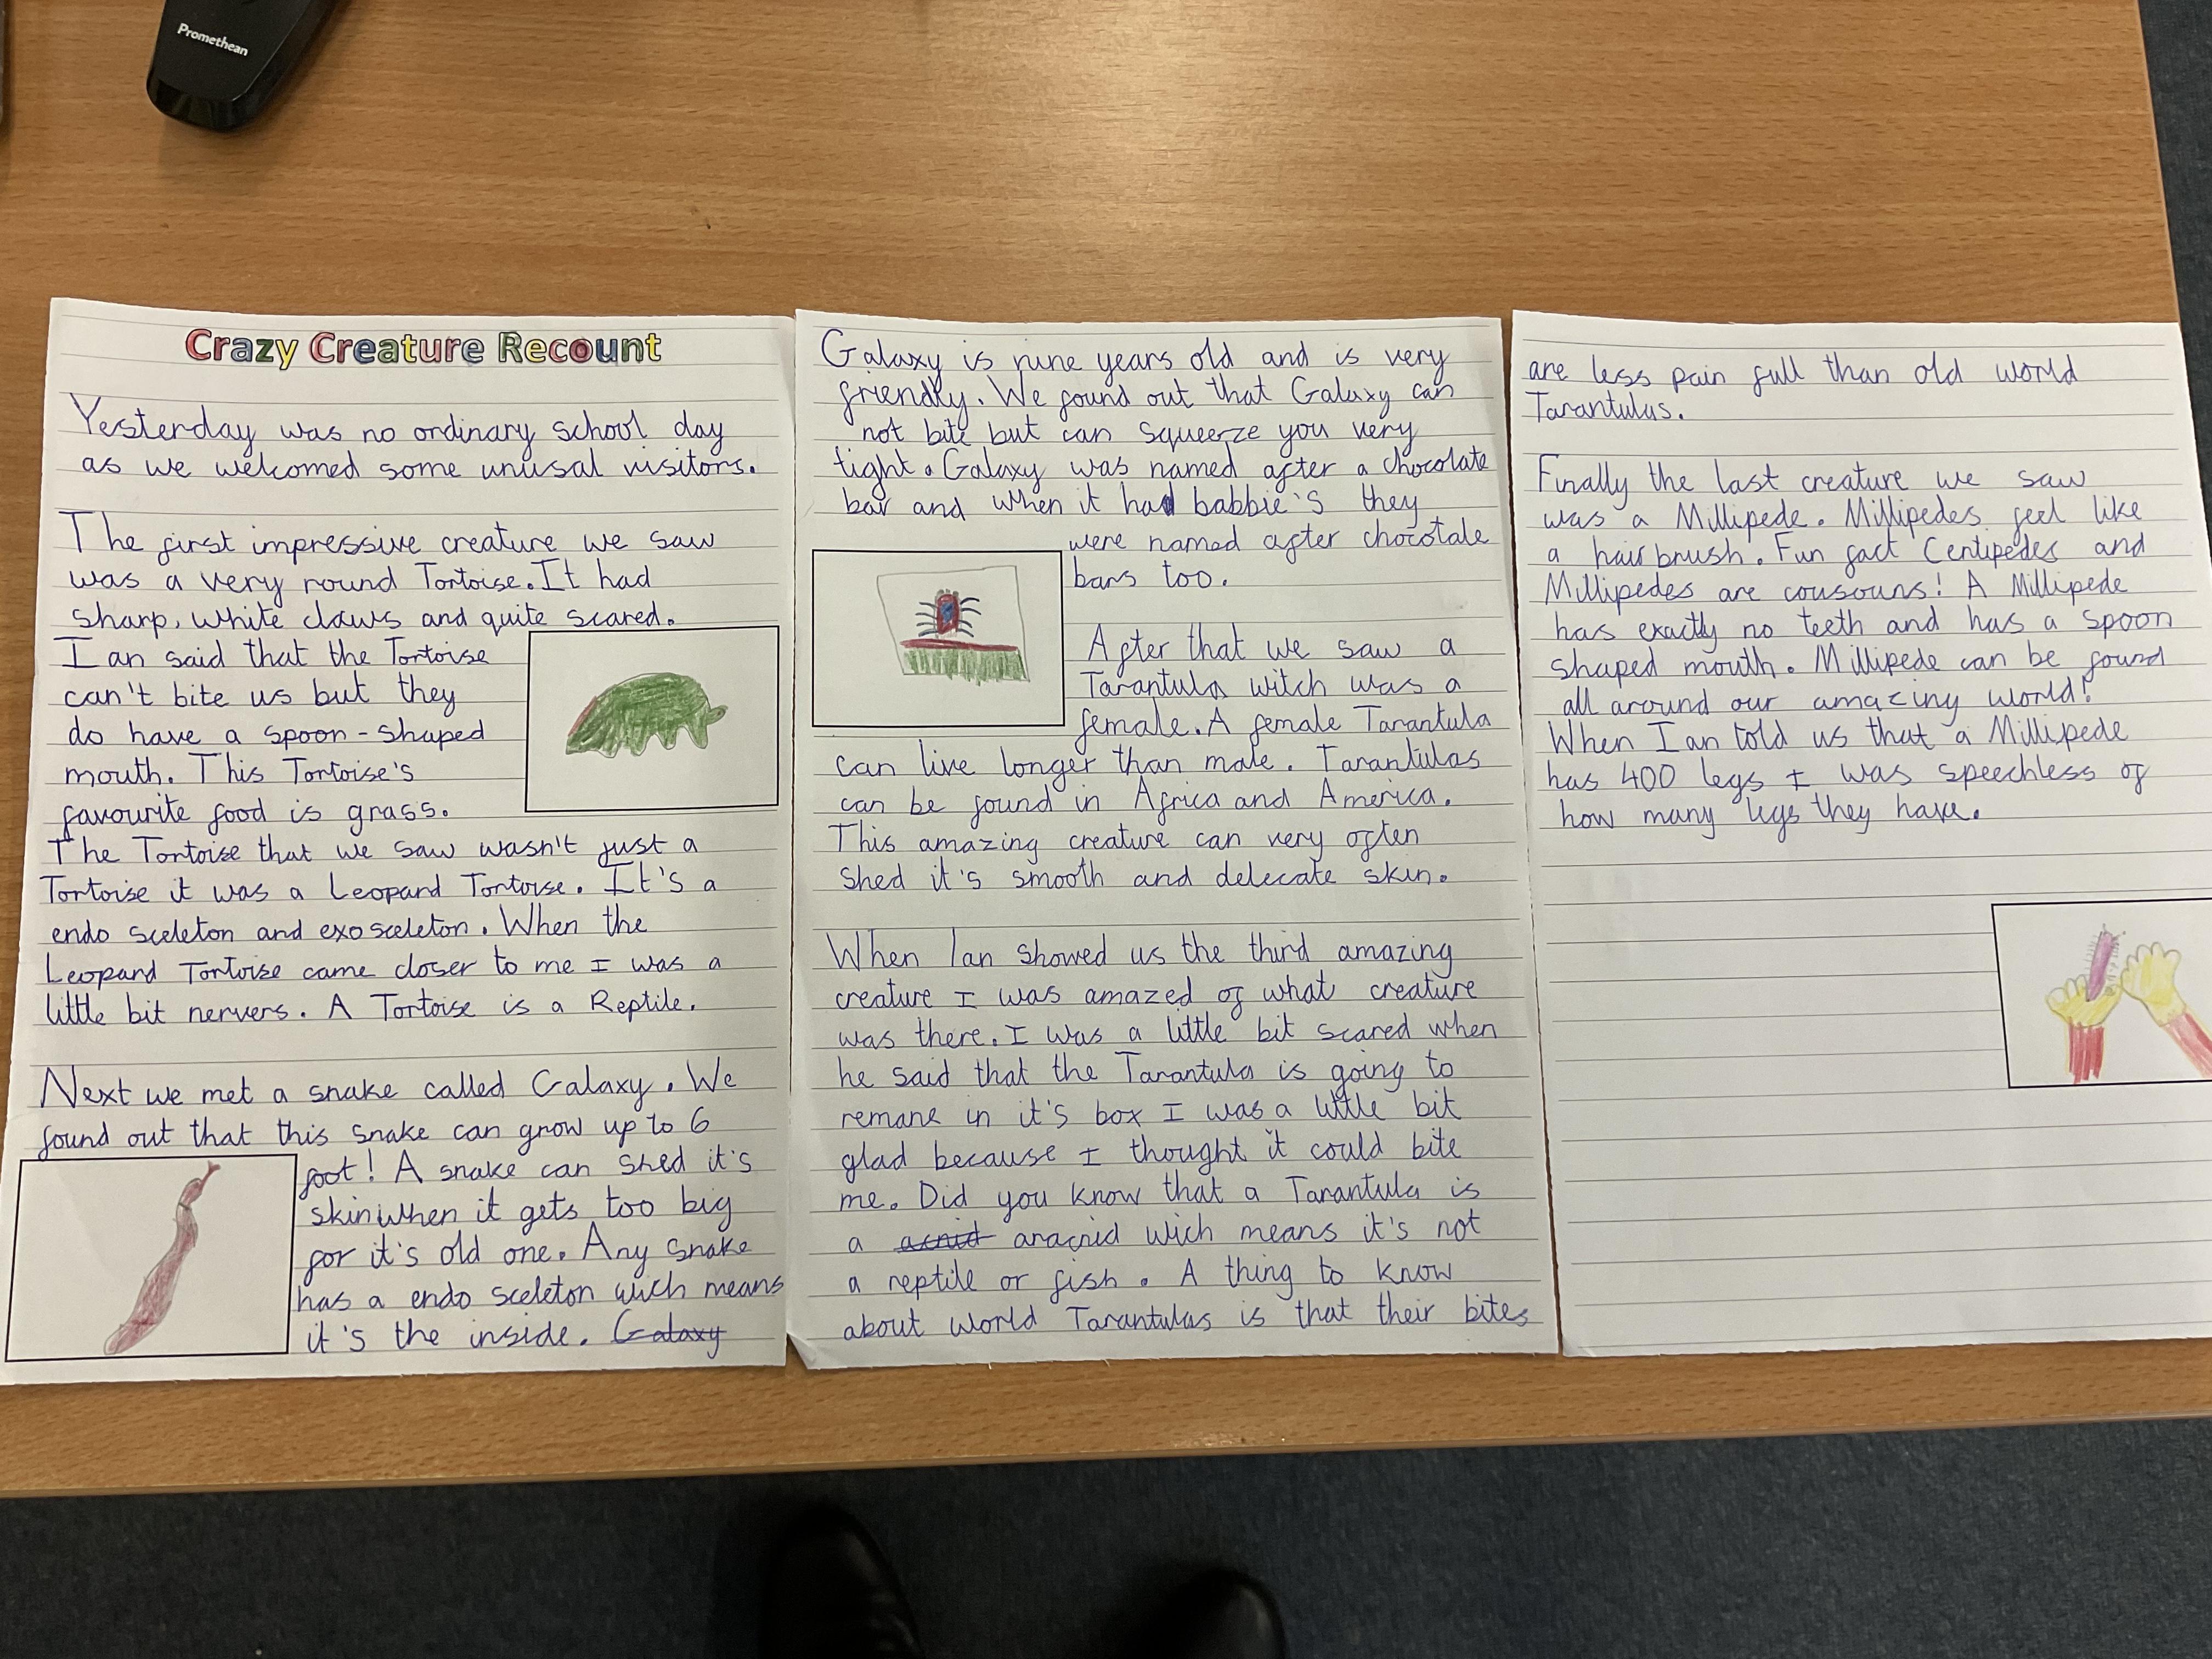 Promethean
Crazy Creature Recount
Yesterday was no ordinary school day
as we welcomed some unusal visitors.
The first impressive creature we saw
was a very round Tortoise. It had
sharp, white claws and quite scared.
Ian said that the Tortoise
can't bite us but they
do have a spoon-shaped
mouth. This Tortoise's
favourite food is grass.
The Tortoise that we saw wasn't just a
Tortoise it was a Leopard Tortoise. It's a
endo sceleton and exo sceleton. When the
Leopard Tortoise came closer to me I was a
little bit nervers. A Tortoise is a Reptile.
Next we met a snake called Galaxy. We
found out that this snake can grow up to 6
foot! A snake can shed it's
skin when it gets too big
for it's old one. Any snake
has a endo sceleton wich means
it's the inside. Galaxy
Galaxy is nine years old and is very
friendly. We found out that Galaxy can
not bite but can squeeze you very
tight. Galaxy was named after a chocolate
bar and when it had babbie's they
were named after chocotale
bars too.
After that we saw a
Tarantula witch was a
female. A female Tarantula
can live longer than male. Tarantulas
can be found in Africa and America.
This amazing creature can very often
shed it's smooth and delecate skin.
When Ian showed us the third amazing
creature I was amazed of what creature
was there. I was a little bit scared when
he said that the Tarantula is going to
remane in it's box I was a little bit
glad because I thought it could bite
me. Did you know that a Tarantula is
a acnid aracnid wich means it's not
a reptile or fish. A thing to know
about world Tarantulas is that their bites
are less pain full than old world
Tarantulas.
Finally the last creature we saw
was a Millipede. Millipedes feel like
a hairbrush. Fun fact Centipedes and
Millipedes are cousouns! A Millipede
has exactly no teeth and has a spoon
shaped mouth. Millipede can be found
all around our amazing world!
When Ian told us that a Millipede
has 400 legs I was speechless of
how many legs they have.